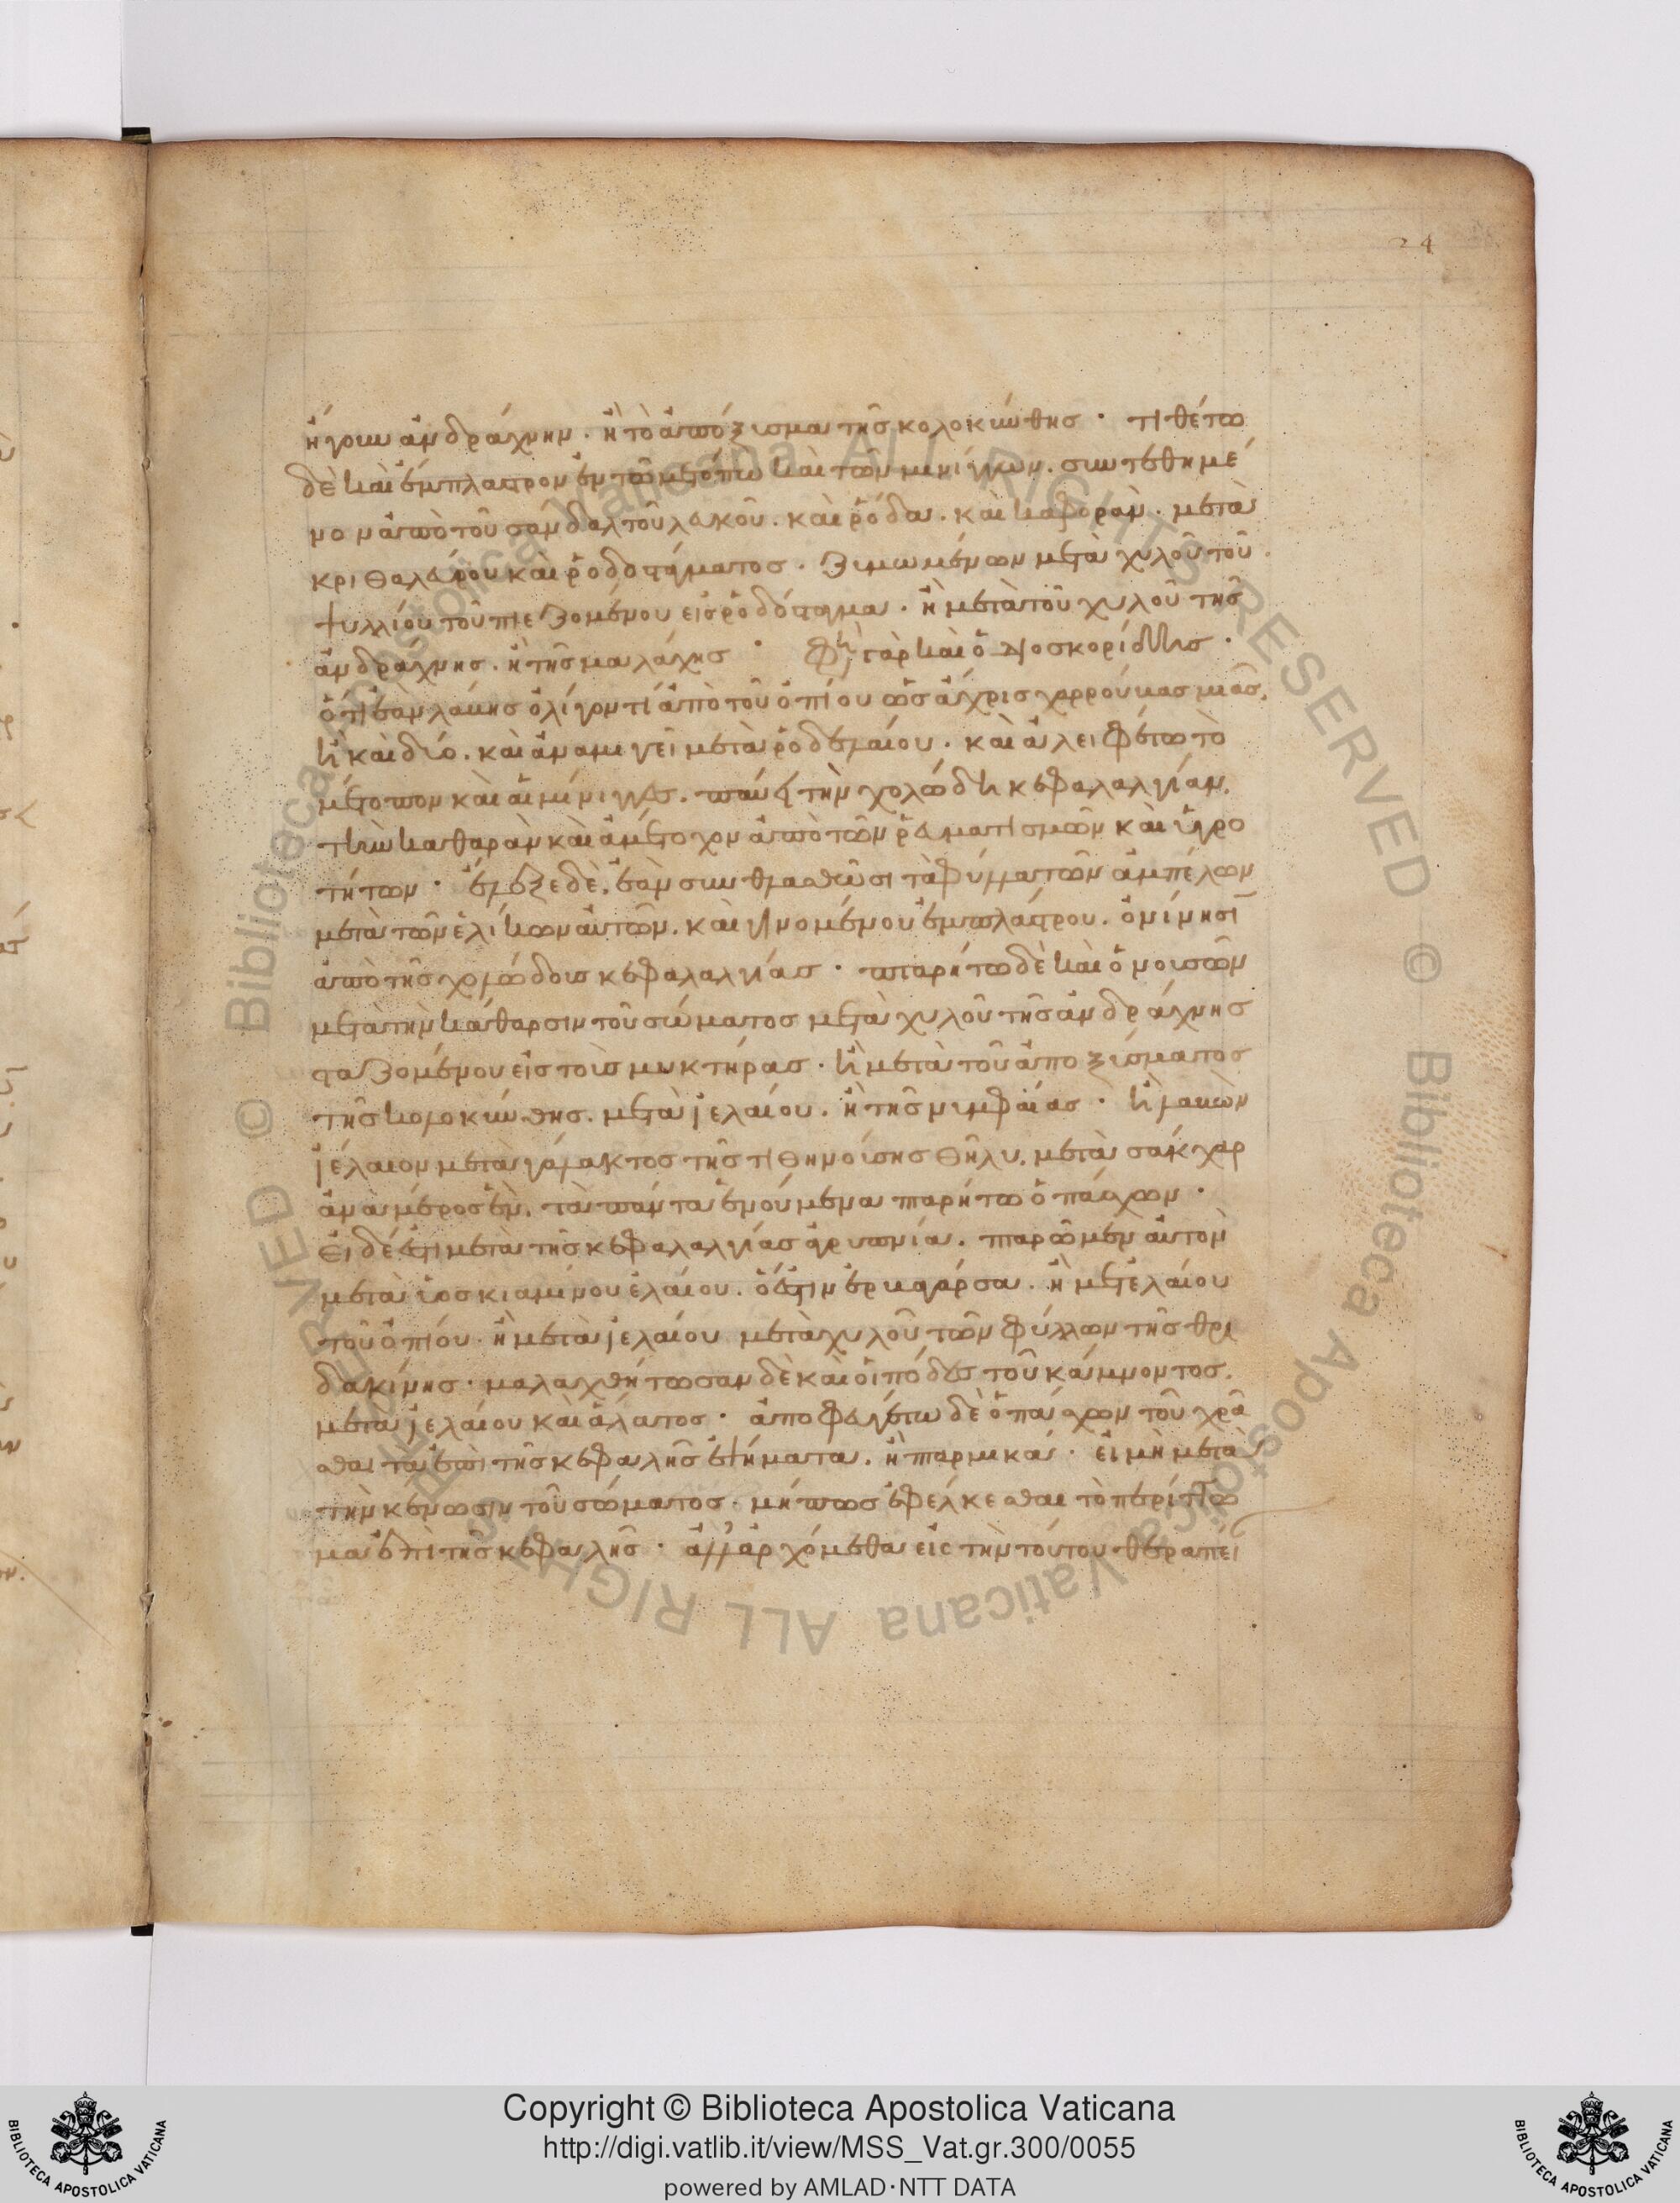 24
ἤγουν ἀνδράχνην · ἢ τὸ ἀπόξισμα τῆς κολοκύνθης · τιθέτω
δὲ καὶ ἔμπλαστρον ἐν τῶ μετόπω καὶ τῶν μινίγγων. συντεθημέ
νον ἀπὸ τοῦ σανδαλ τοῦ λευκοῦ. καὶ ῥόδα. καὶ καφορὰν. μετὰ
κριθαλεύρου καὶ ῥοδοστάματος · ζιμωμένων μετὰ χυλοῦ τοῦ
ψυλλίου τοῦ πιεζομένου εἰς ῥοδόσταμα. ἢ μετὰ τοῦ χυλοῦ τῆς
ἀνδράχνης. ἢ τῆς μαλάχης · φη γὰρ καὶ ὁ Διοσκορίδης ·
ὅτι ἐὰν λάβης ὀλίγον τί ἀπὸ τοῦ ὀπίου ὡς ἄχρις χαρρούβας μιᾶς.
ἢ καὶ δύο. καὶ ἀναμιγεῖ μετὰ ῥοδελαίου. καὶ ἀλειφέτω τὸ
μέτοπον καὶ αἱ μίνιγγες. παύει τὴν χολώδη κεφαλαλγίαν.
τὴν καθαρὰν καὶ ἀμέτοχον ἀπὸ τῶν ῥευματισμῶν καὶ ὑγρο
τήτων · ἔλεξε δὲ. ἐὰν συνθλασθῶσι τὰ φύλλα τῶν ἀμπέλων
μετὰ τῶν ἑλίκων αὐτῶν. καὶ γινομένου ἐμπλάστρου. ὀνίνησι
ἀπὸ τῆς χολώδους κεφαλαλγίας · πταρήτω δὲ καὶ ὁ νοσῶν
μετὰ τὴν κάθαρσιν τοῦ σώματος μετὰ χυλοῦ τῆς ἀνδράχνης
σταζομένου εἰς τοὺς μυκτήρας · ἢ μετὰ τοῦ ἀποξίσματος
τῆς κολοκύνθης. μετὰ ἰελαίου. ἢ τῆς νιμφαίας · ἢ λαβὼν
ἰέλαιον μετὰ γάλακτος τῆς τιθηνούσης θῆλυ. μετὰ σάκχαρ
ἀνὰ μέρος ἓν. τὰ πάντα ἑνούμενα πταρήτω ὁ πάσχων ·
Εἰ δέ ἐστι μετὰ τῆς κεφαλαλγίας ἀγρυπνία. πταρῶμεν αὐτὸν
μετὰ ὑοσκιαμίνου ἐλαίου. ὅ ἐστιν ἐρικιάρσα. ἢ μετ ἐλαίου
τοῦ ὀπίου · ἢ μετὰ ἰελαίου μετὰ χυλοῦ τῶν φύλλων τῆς θρι
δακίνης · μαλαχθήτωσαν δὲ καὶ οἱ πόδες τοῦ κάμνοντος.
μετὰ ἰελαίου καὶ ἅλατος · ἀποφευγέτω δὲ ὁ πάσχων τοῦ χρᾶ
σθαι τὰ ἐπὶ τῆς κεφαλῆς ἐψήματα. ἢ πταρμικά · εἰ μὴ μετὰ
τὴν κένωσιν τοῦ σώματος · μήπως ἐφέλκεσθαι τὸ περίττω
μα ἐπὶ τῆς κεφαλῆς · ἀλλ ἀρχόμεθα εἰς τὴν τούτου θεραπεί
Copyright © Biblioteca Apostolica Vaticana
http://digi.vatlib.it/view/MSS_Vat.gr.300/0055
powered by AMLAD·NTT DATA